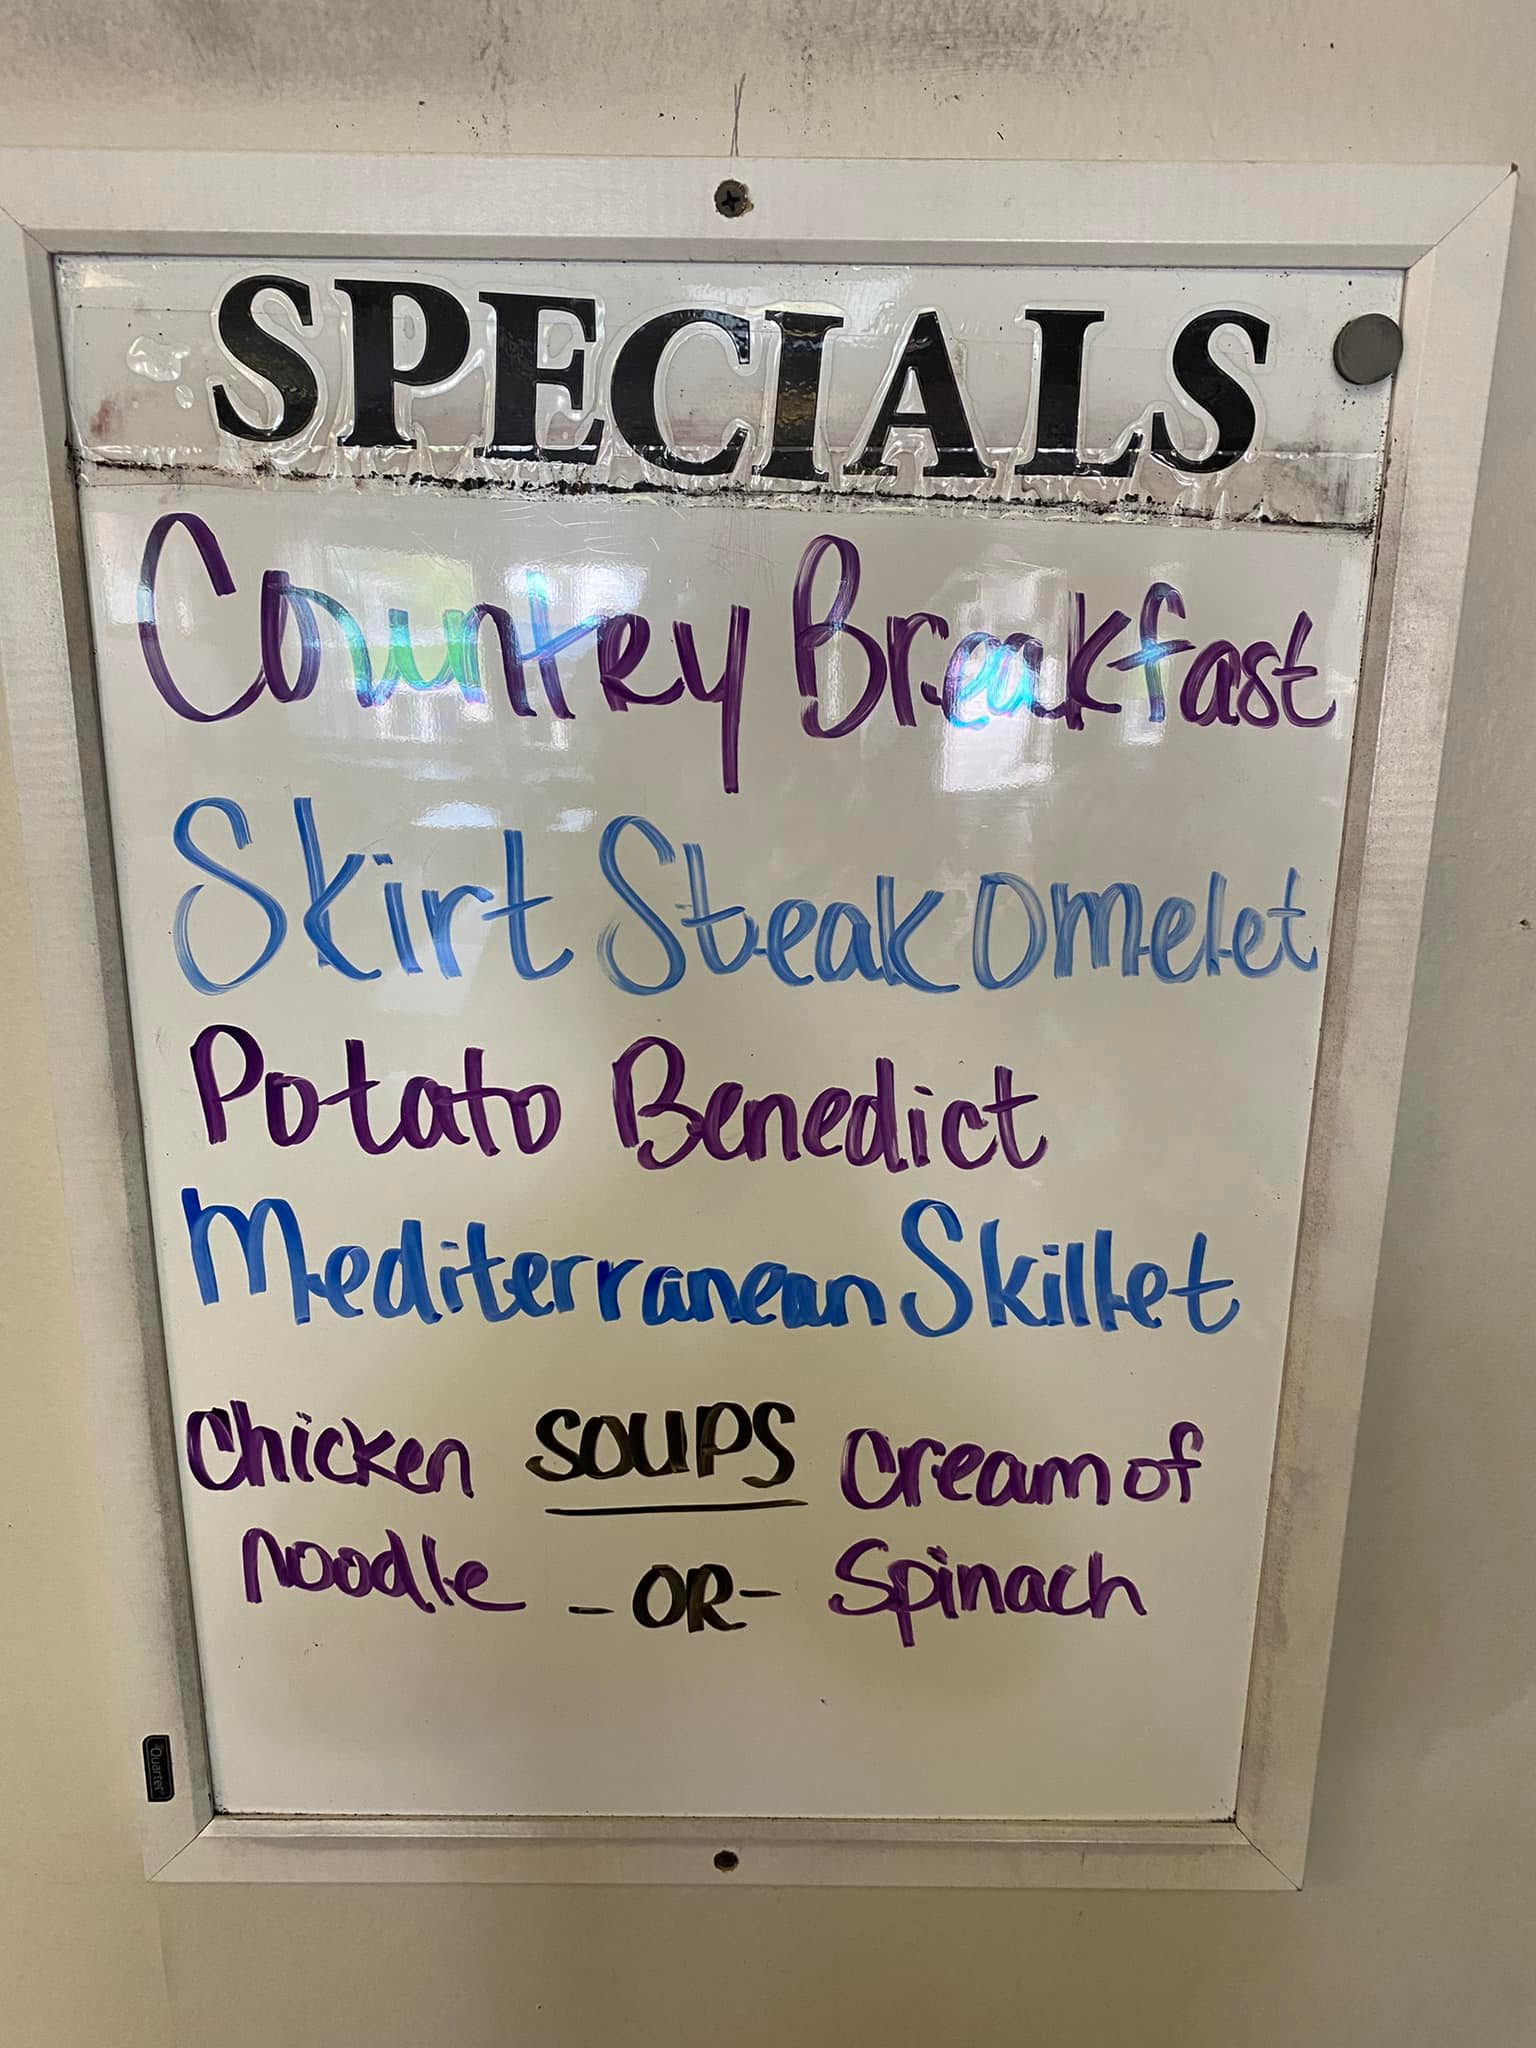 SPECIALS
Country Breakfast
Skirt Steak Omelet
Potato Benedict
Mediterranean Skillet
Chicken SOUPS Cream of
Noodle -OR- Spinach
Quartet